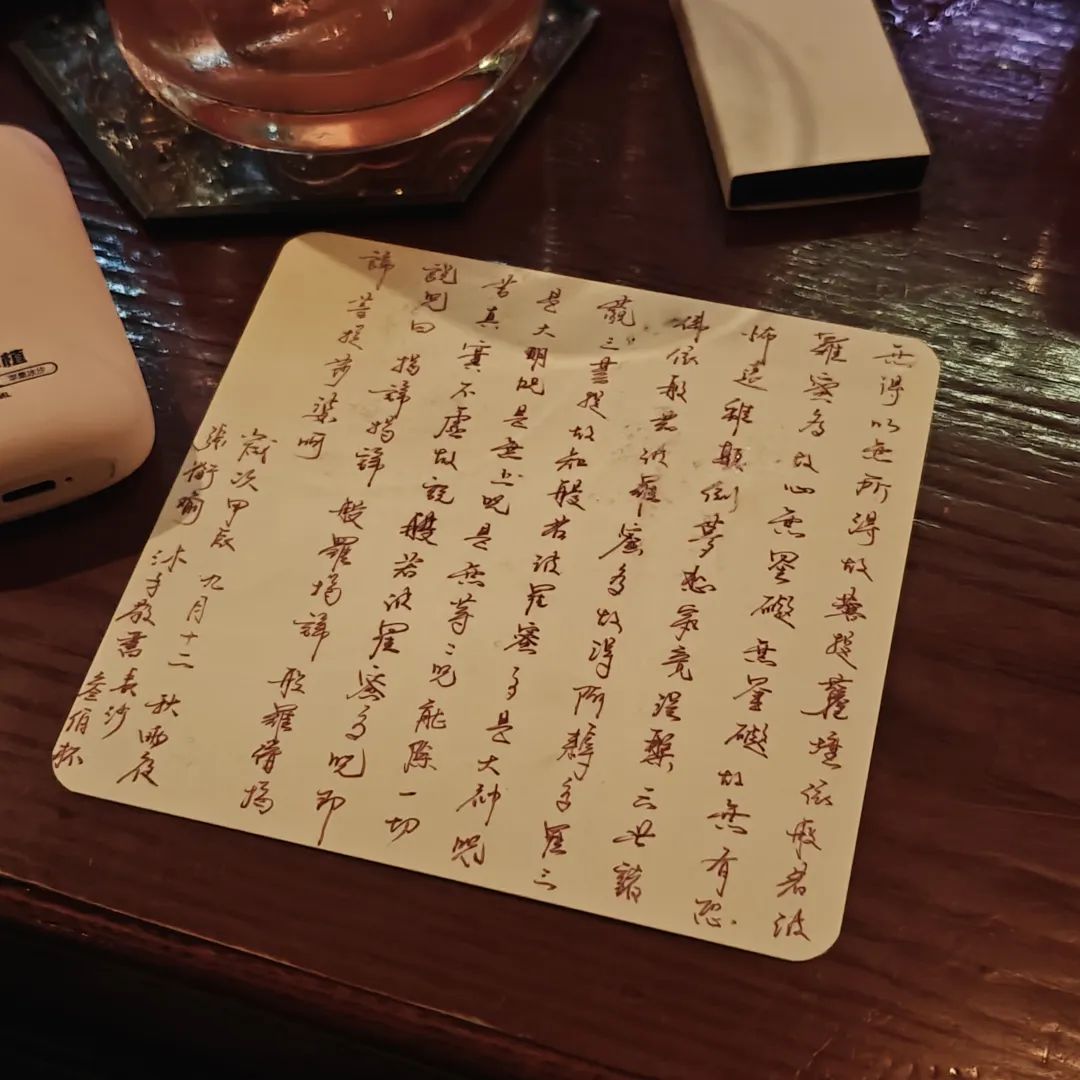 無得以無所得故菩提薩埵依般若波
羅蜜多故心無罣礙無罣礙故無有恐
怖遠離顛倒夢想究竟涅槃三世諸
佛依般若波羅蜜多故得阿耨多羅三
藐三菩提故知般若波羅蜜多是大神咒
是大明咒是無上咒是無等三咒能除一切
苦真實不虛故說般若波羅蜜多咒即
說咒曰 揭諦揭諦 般羅揭諦 般羅僧揭
諦 菩提莎婆呵
歲次甲辰 九月十二 秋雨夜
張 沐手敬書 長沙
壹佰杯
植